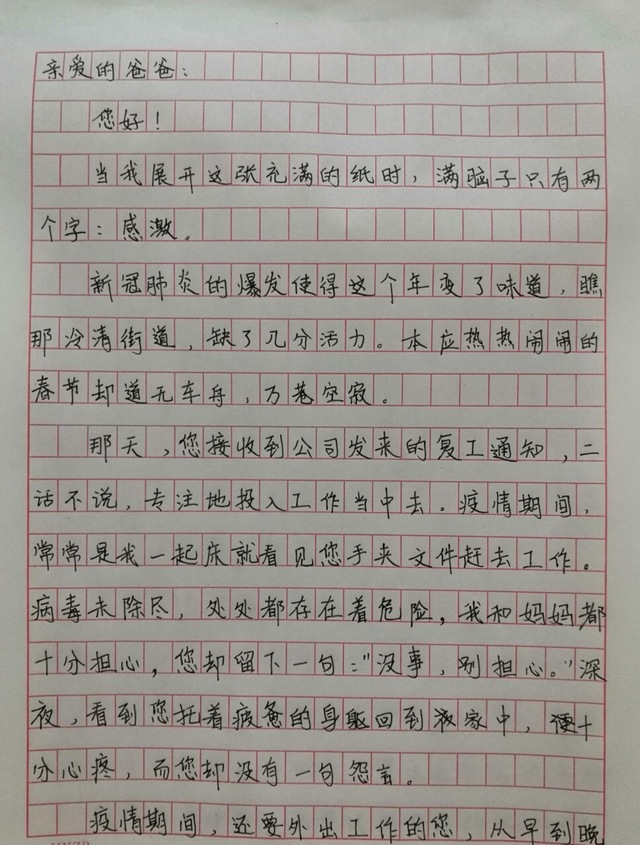 亲爱的爸爸：
您好！
当我展开这张充满的纸时，满脑子只有两
个字：感激。
新冠肺炎的爆发使得这个年变了味道，瞧
那冷清街道，缺了几分活力。本应热热闹闹的
春节却道无车舟，万巷空寂。
那天，您接收到公司发来的复工通知，二
话不说，专注地投入工作当中去。疫情期间，
常常是我一起床就看见您手夹文件赶去工作。
病毒未除尽，处处都存在着危险，我和妈妈都
十分担心，您却留下一句："没事，别担心。"深
夜，看到您托着疲惫的身躯回到家中，便十
分心疼，而您却没有一句怨言。
疫情期间，还要外出工作的您，从早到晚